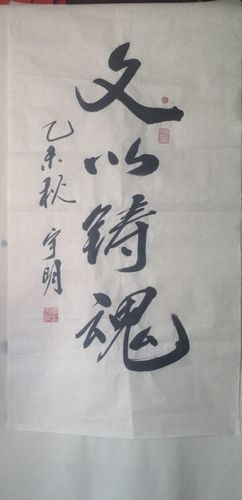 文以铸魂
乙未秋 宇明